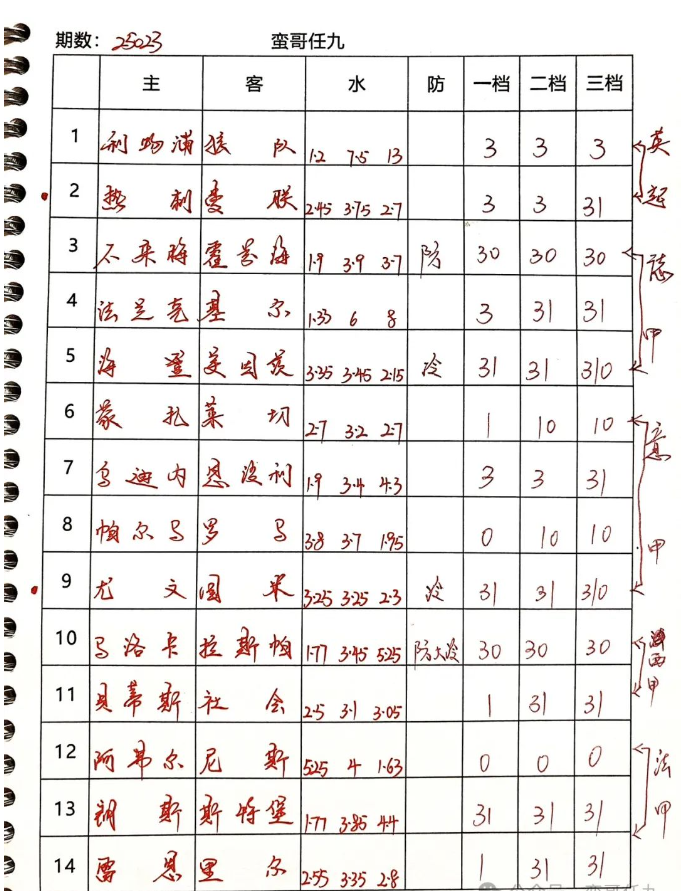 期数: 25023 蛮哥任九
主 客 水 防 一档 二档 三档
1 利物浦 狼队 1.2 7.5 13 3 3 3 英
2 热刺 曼联 2.45 3.75 2.7 3 3 31 超
3 不来梅 霍芬海 1.9 3.9 3.7 防 30 30 30 德
4 法兰克 基尔 1.33 6 8 3 31 31 甲
5 海登 门因茨 3.35 3.45 2.15 冷 31 31 310
6 蒙扎 莱切 2.7 3.2 2.7 1 10 10 意
7 乌迪内 恩波利 1.9 3.4 4.3 3 3 31
8 帕尔马 罗马 3.8 3.7 1.95 0 10 10 甲
9 尤文 国米 3.25 3.25 2.3 冷 31 31 310
10 马洛卡 拉斯帕 1.77 3.45 5.25 防大冷 30 30 30 西
11 贝蒂斯 社会 2.5 3.1 3.05 1 31 31 甲
12 阿弗尔 尼斯 5.25 4 1.63 0 0 0 法
13 朗斯 斯特堡 1.77 3.85 4.4 31 31 31 甲
14 雷恩 里尔 2.55 3.35 2.8 1 31 31
公众号 蛮哥任九